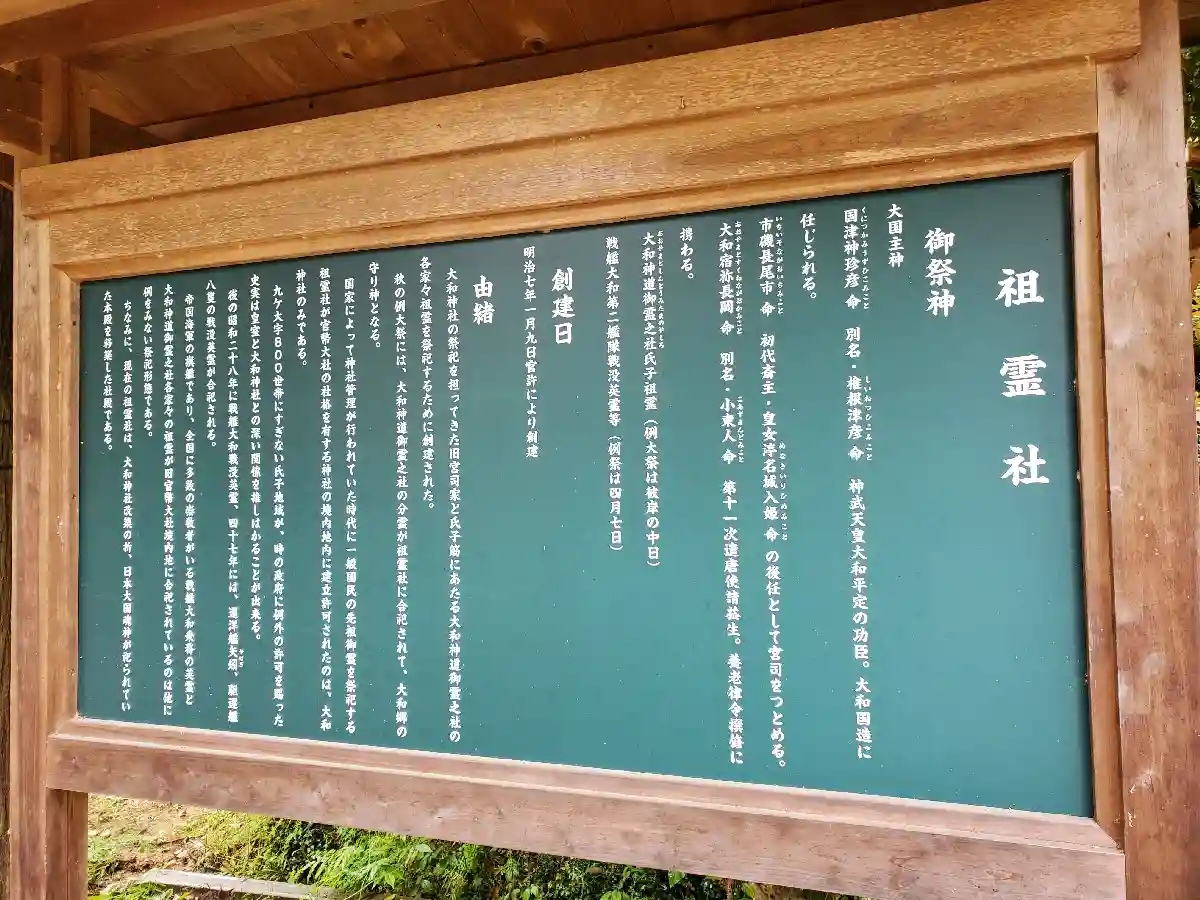 祖霊社
御祭神
大国主神
国津神珍彦命 別名・椎根津彦命 神武天皇大和平定の功臣。大和国造に
任じられる。
市磯長尾市命 初代斎主・皇女渟名城入姫命の後任として宮司をつとめる。
大和宿祢長岡命 別名・小東人命 第十一次遣唐使請益生。養老律令撰修に
携わる。
大和神道御霊之社氏子祖霊(例大祭は彼岸の中日)
戦艦大和第二艦隊戦没英霊等(例祭は四月七日)
創建日
明治七年一月九日官許により創建
由緒
大和神社の祭祀を担ってきた旧宮司家と氏子筋にあたる大和神道御霊之社の
各家々祖霊を祭祀するために創建された。
秋の例大祭には、大和神道御霊之社の分霊が祖霊社に合祀されて、大和郷の
守り神となる。
国家によって神社管理が行われていた時代に一般国民の先祖御霊を祭祀する
祖霊社が官幣大社の社格を有する神社の境内地内に建立許可されたのは、大和
神社のみである。
九ケ大字800世帯にすぎない氏子地域が、時の政府に例外の許可を賜った
史実は皇室と大和神社との深い関係を推しはかることが出来る。
後の昭和二十八年に戦艦大和戦没英霊、四十七年には、巡洋艦矢矧、駆逐艦
八隻の戦没英霊が合祀される。
帝国海軍の旗艦であり、全国に多数の崇敬者がいる戦艦大和乗斎の英霊と
大和神道御霊之社各家々の祖霊が旧官幣大社境内地に合祀されているのは他に
例をみない祭祀形態である。
ちなみに、現在の祖霊社は、大和神社改築の折、日本大国魂神が祀られてい
た本殿を移築した社殿である。